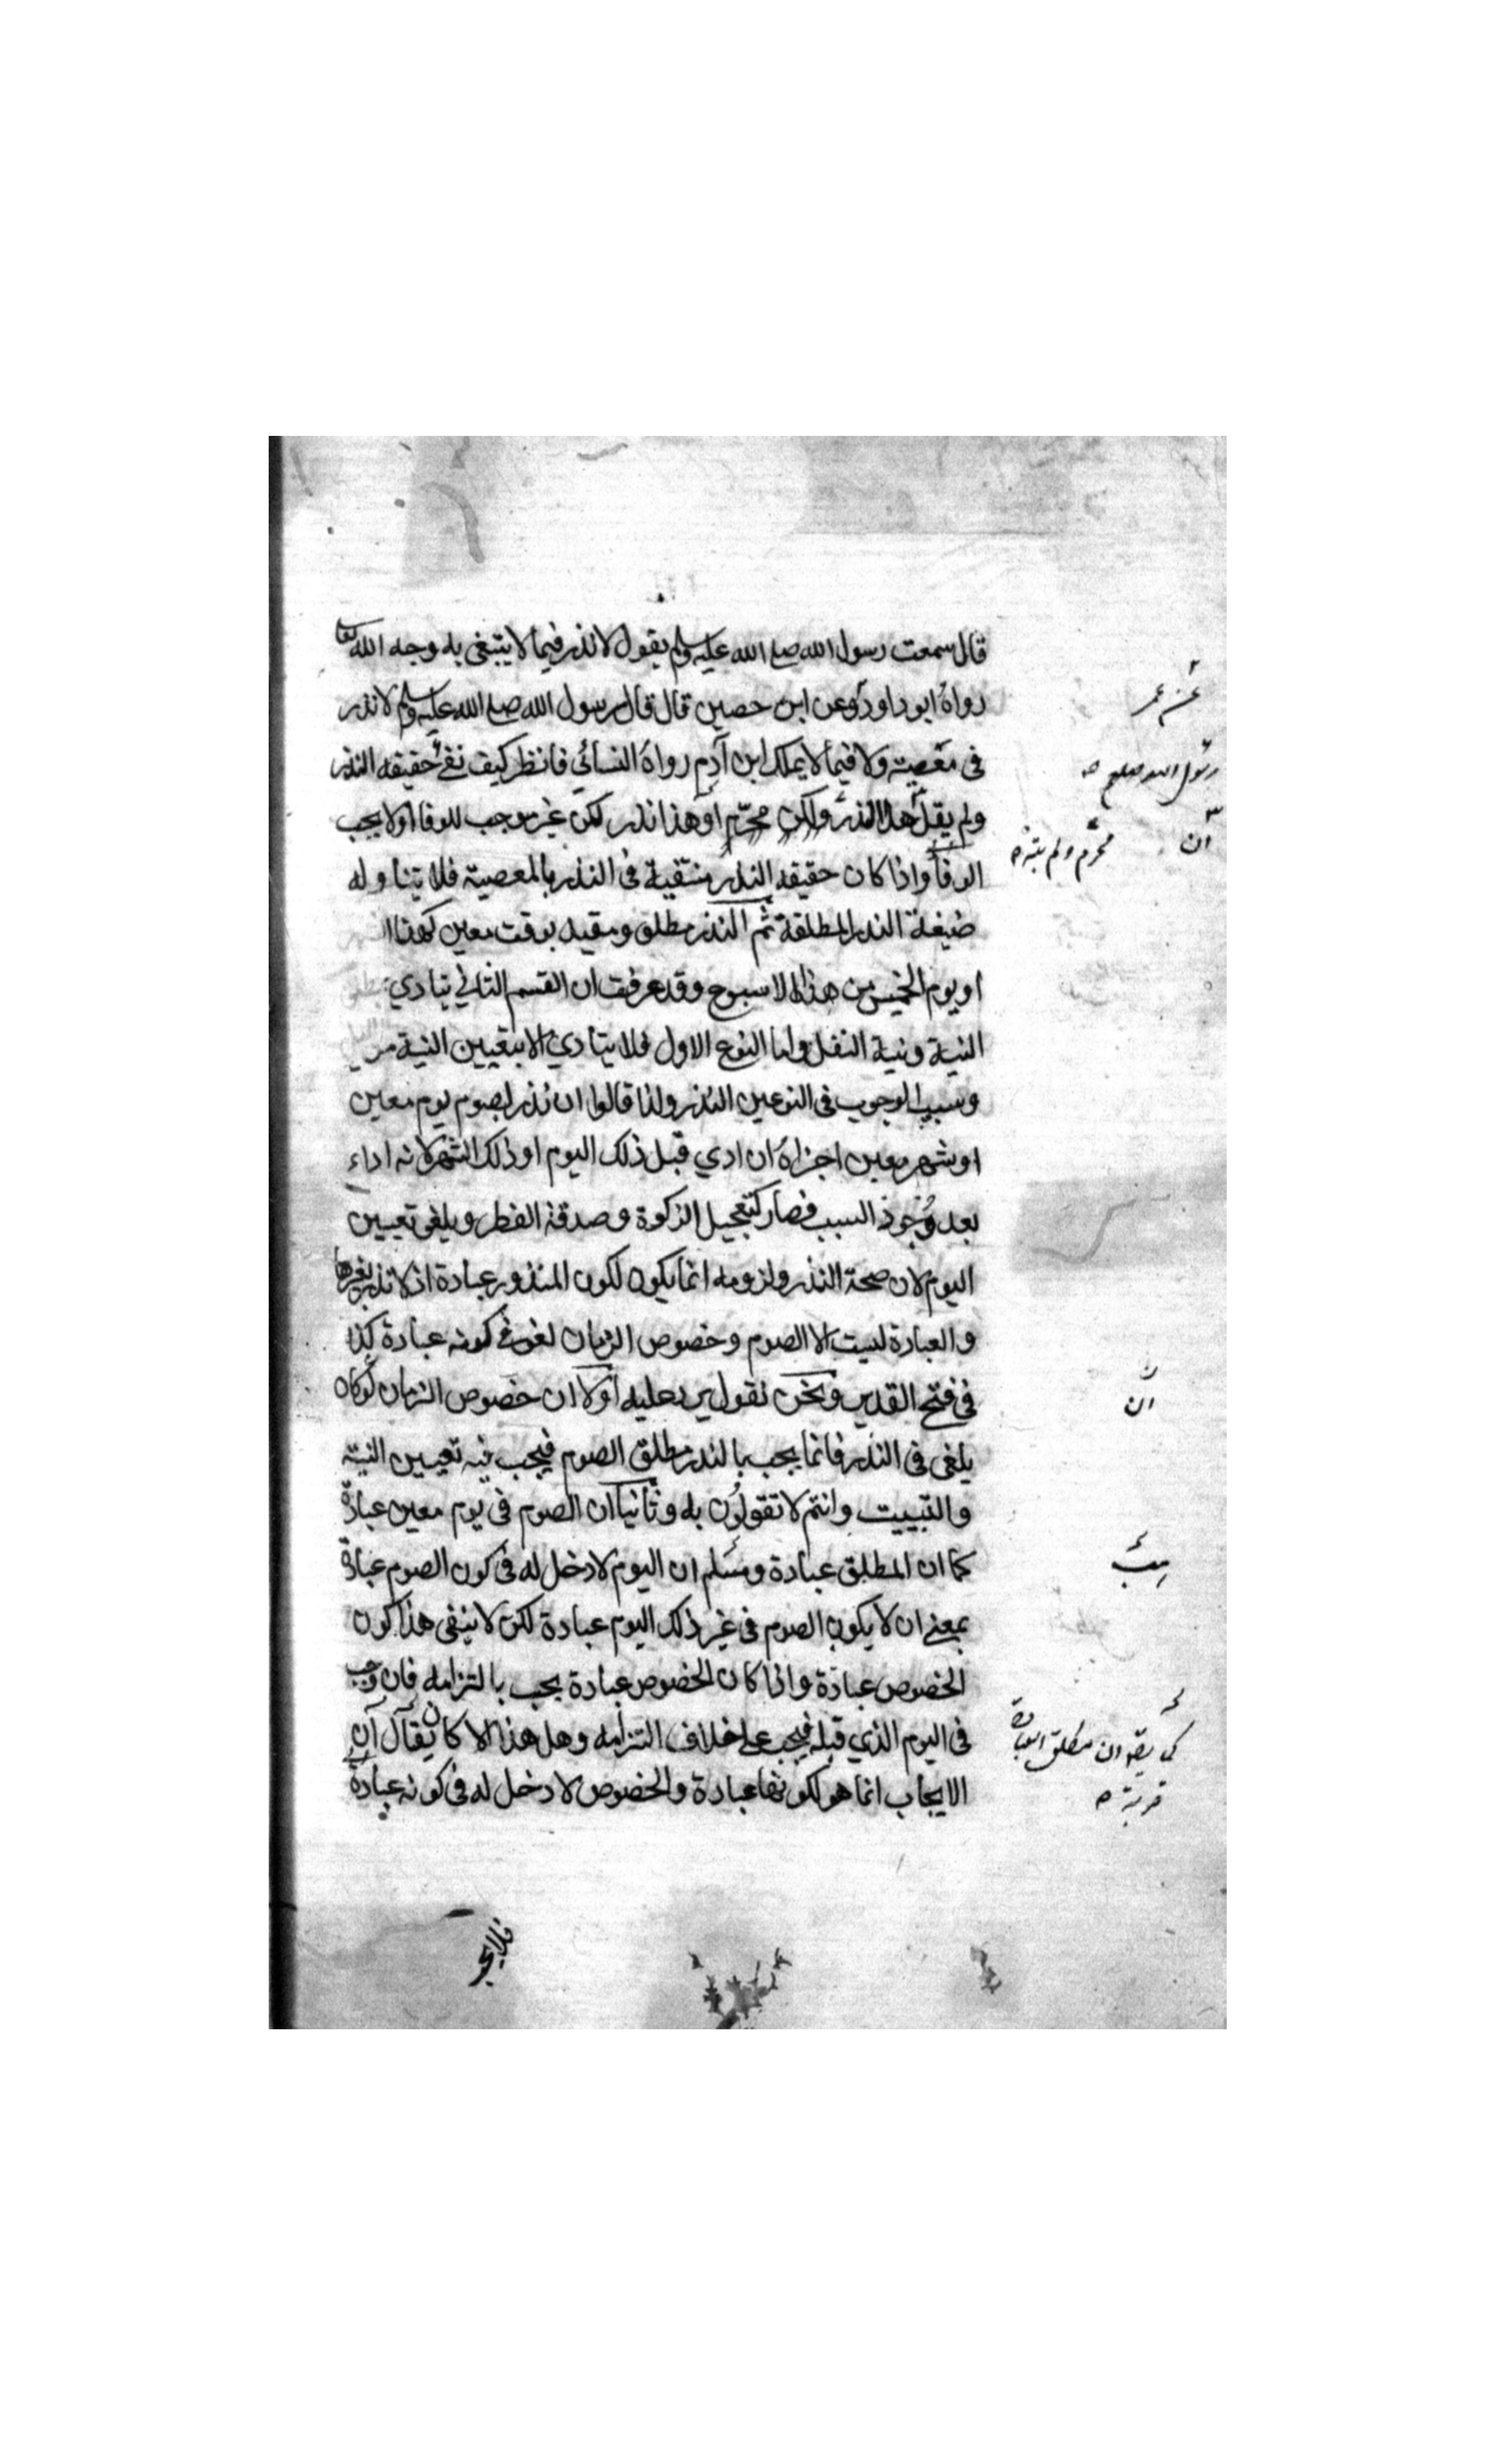 قال سمعت رسول الله صلى الله عليه وسلم يقول لا نذر فيما لا يبتغى به وجه الله تعالى
رواه ابو داود وعن ابن حصين قال قال رسول الله صلى الله عليه وسلم لا نذر
فى معصية ولا فيما لا يملك ابن آدم رواه النسائي فانظر كيف نفى حقيقه النذر
ولم يقل هذا النذر ولكن محرم او هذا نذر لكن غير موجب للوفا اولا يجب
الوفا واذا كان حقيقه النذر منتفية فى النذر بالمعصية فلا يتناوله
صيغة النذر المطلقة ثم النذر مطلق ومقيد بوقت معين كهذا
او يوم الخميس من هذا الاسبوع وقد عرفت ان القسم الثاني يتادي
النية ونية النفل واما النوع الاول فلا يتادي الا بتعيين النية من
وسبب الوجوب فى النوعين النذر ولذا قالوا ان نذر لصوم يوم معين
او شهر معين اجزاه ان ادي قبل ذلك اليوم او ذلك الشهر لانه اداء
بعد وجود السبب فصار كتعجيل الزكوة وصدقة الفطر ويلغى تعيين
اليوم لان صحة النذر ولزومه انما يكون لكون المنذور عبادة اذ لا نذر بغيرها
والعبادة ليست الا الصوم وخصوص الزمان لغو فى كونه عبادة كذا
فى فتح القدير ونحن نقول يرد عليه اولا ان خصوص الزمان لو كان
يلغى فى النذر فانما يجب بالنذر مطلق الصوم فيجب فيه تعيين النية
والتبييت وانتم لا تقولون به وثانيا ان الصوم فى يوم معين عبادة
كما ان المطلق عبادة ومسلم ان اليوم لا دخل له فى كون الصوم عبادة
بمعنى ان لا يكون الصوم فى غير ذلك اليوم عبادة لكن لا ينفى هذا كون
الخصوص عبادة واذا كان الخصوص عبادة يجب بالتزامه فان وجب
فى اليوم الذي قبله فيجب على خلاف التزامه وهل هذا الا كان يقال ان
الايجاب انما هو لكونها عبادة والخصوص لا دخل له فى كونه عبادة
عن عمر
رسول الله صلعم
ان
محرم ولم
ان
ان مطلق العبادة
قربة